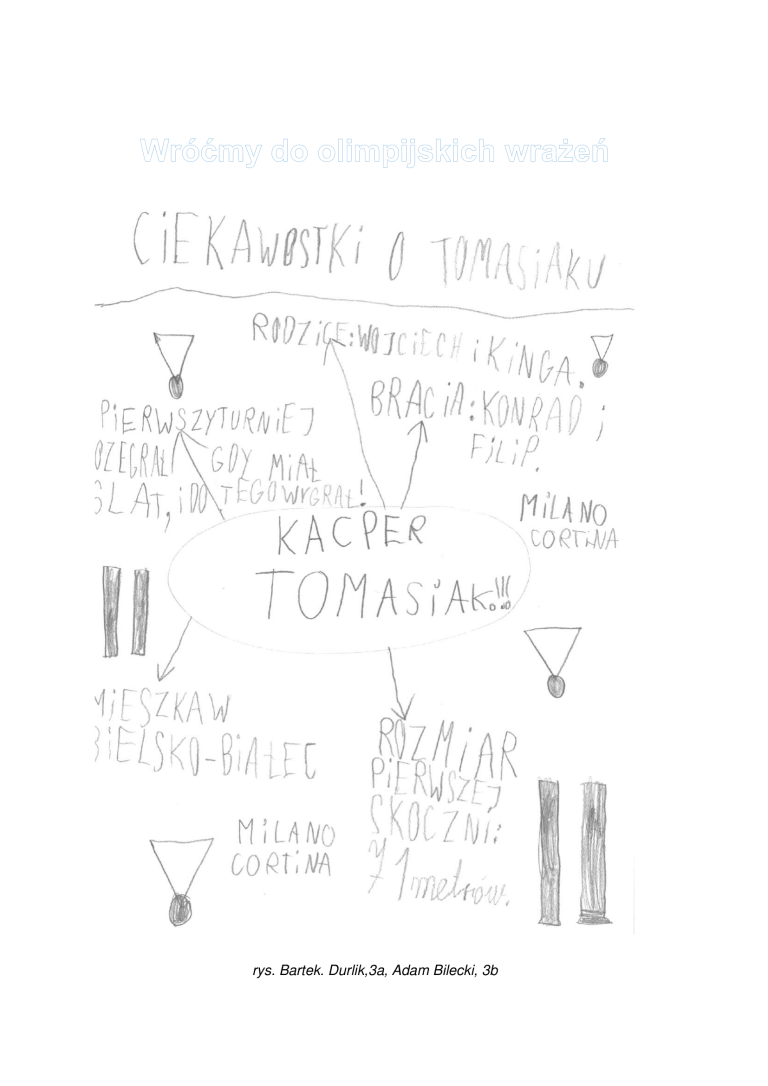 Wróćmy do olimpijskich wrażeń
CiEKAWOSTKi O TOMASiAKU
RODZiCE: WOJCiECH i KiNGA.
BRACiA: KONRAD i
FiLiP.
PiERWSZY TURNiEJ
OZEGRAŁ GDY MiAŁ
LAT, i DO TEGO WYGRAŁ!
MiLANO
CORTiNA
KACPER
TOMASiAK!!!
MiESZKA W
BiELSKO-BiAŁEJ
ROZMiAR
PiERWSZEJ
SKOCZNi:
71 metrów.
MiLANO
CORTiNA
rys. Bartek. Durlik,3a, Adam Bilecki, 3b